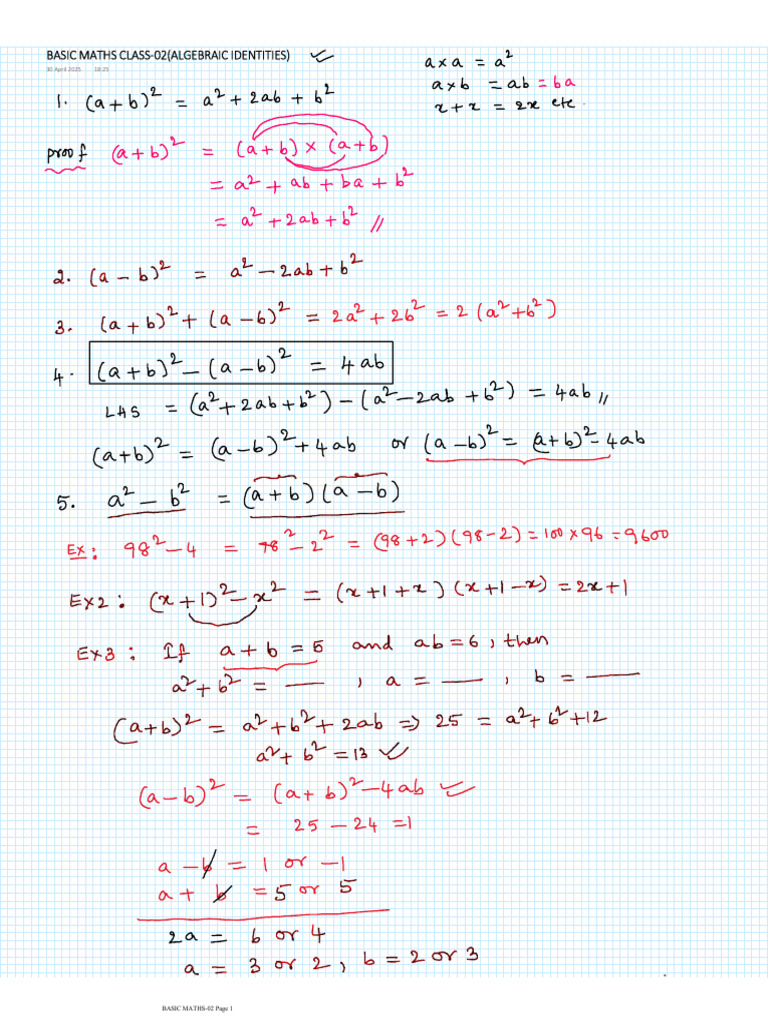 BASIC MATHS CLASS-02(ALGEBRAIC IDENTITIES)
30 April 2025 18:25
a×a = a²
a×b = ab = ba
x+x = 2x etc.
1. (a+b)² = a² + 2ab + b²
proof (a+b)² = (a+b) × (a+b)
= a² + ab + ba + b²
= a² + 2ab + b² //
2. (a − b)² = a² − 2ab + b²
3. (a+b)² + (a−b)² = 2a² + 2b² = 2 (a² + b²)
4. (a+b)² − (a−b)² = 4ab
LHS = (a² + 2ab + b²) − (a² − 2ab + b²) = 4ab //
(a+b)² = (a−b)² + 4ab or (a−b)² = (a+b)² − 4ab
5. a² − b² = (a+b)(a−b)
Ex: 98² − 4 = 98² − 2² = (98+2)(98−2) = 100 × 96 = 9600
Ex2: (x+1)² − x² = (x+1+x) (x+1−x) = 2x+1
Ex3: If a+b = 5 and ab = 6, then
a² + b² = ___ , a = ___ , b = ___
(a+b)² = a² + b² + 2ab ⇒ 25 = a² + b² + 12
a² + b² = 13 ✓
(a−b)² = (a+b)² − 4ab ✓
= 25 − 24 = 1
a − b = 1 or −1
a + b = 5 or 5
2a = 6 or 4
a = 3 or 2, b = 2 or 3
BASIC MATHS-02 Page 1